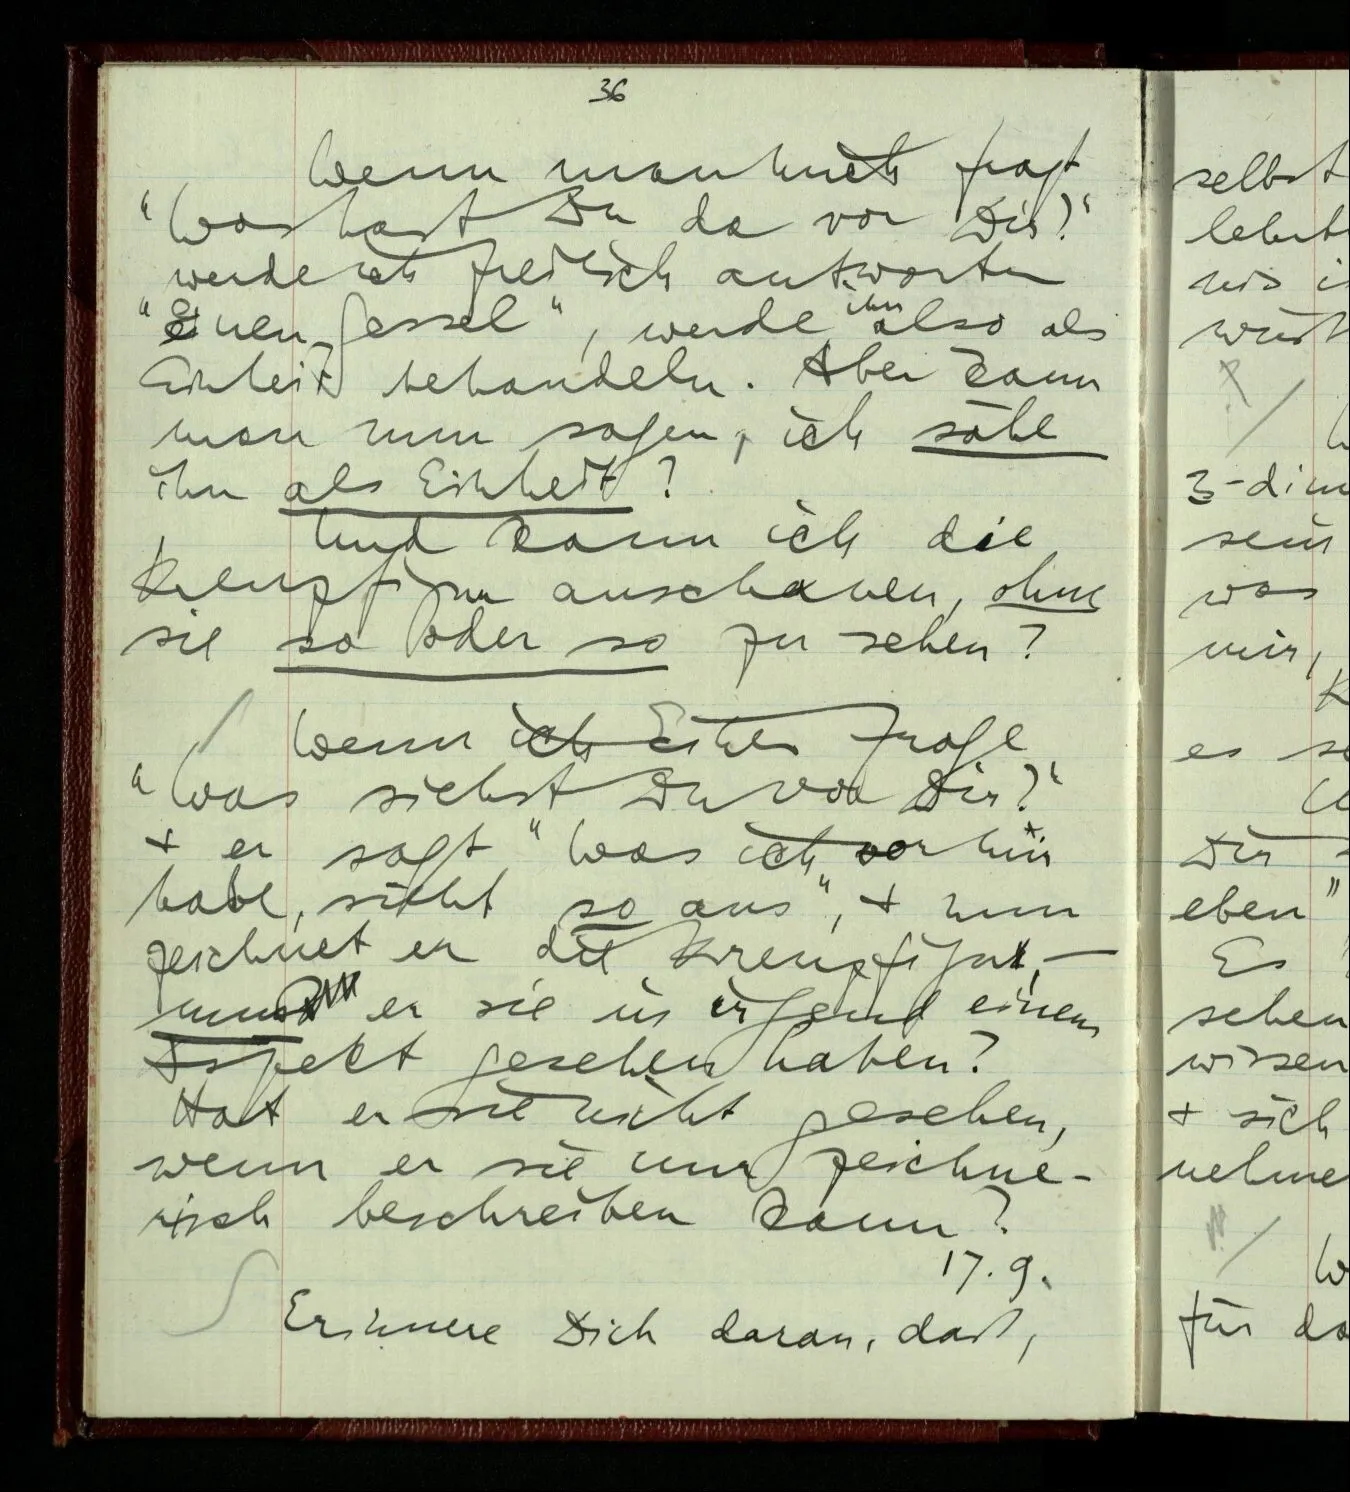 36
Wenn man mich fragt
"Was hast Du da vor Dir?"
werde ich freilich antworten
"einen Sessel", werde ihn also als
Einheit behandeln. Aber kann
man nun sagen, ich sähe
ihn als Einheit?
Und kann ich die
Kreuzfigur anschauen, ohne
sie so oder so zu sehen?
Wenn ich Einen frage
"Was siehst Du vor Dir?"
+ er sagt "Was ich vor mir
habe, sieht so aus", + nun
zeichnet er die Kreuzfigur, –
muss er sie in irgend einem
Aspekt gesehen haben?
Hat er sie nicht gesehen,
wenn er sie nur zeichne-
risch beschreiben kann?
17.9.
Erinnere Dich daran, daß,
selbst
3-dim
was
mir,
es
Dir
eben"
Es
sehen
wissen
+ sich
nehme
für da